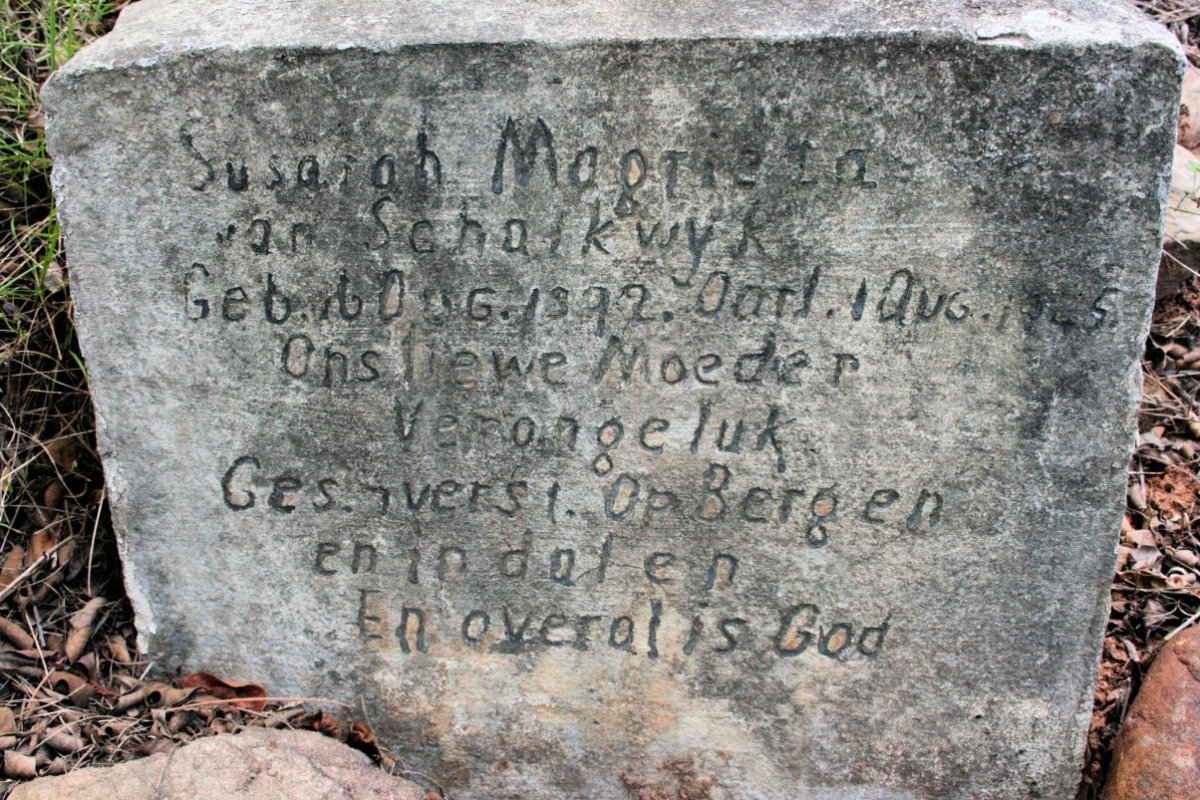 Susarah Magrieta
van Schalkwyk
Geb. 16 Oug. 1892. Oorl. 1 Aug.
Ons liewe Moeder
Verongeluk
Ges. 1 vers 1. Op Bergen
en in dalen
En overal is God